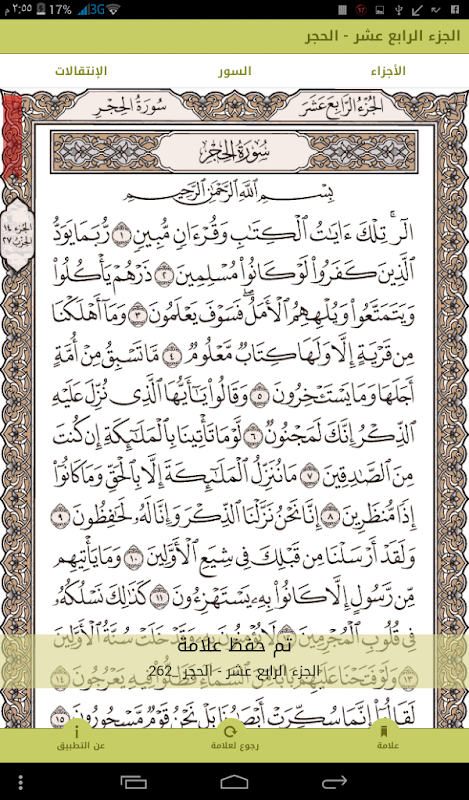 ٢:٥٥ م 17% 3G
الجزء الرابع عشر - الحجر
الأجزاء السور الإنتقالات
الجُزْءُ الرَّابِعَ عَشَرَ سُورَةُ الحِجْرِ
سُورَةُ الحِجْرِ
الجزء ١٤
الحزب ٢٧
بِسْمِ اللَّهِ الرَّحْمَٰنِ الرَّحِيمِ
الٓرۚ تِلْكَ ءَايَٰتُ ٱلْكِتَٰبِ وَقُرْءَانٍ مُّبِينٍ ١ رُّبَمَا يَوَدُّ
ٱلَّذِينَ كَفَرُوا۟ لَوْ كَانُوا۟ مُسْلِمِينَ ٢ ذَرْهُمْ يَأْكُلُوا۟
وَيَتَمَتَّعُوا۟ وَيُلْهِهِمُ ٱلْأَمَلُۖ فَسَوْفَ يَعْلَمُونَ ٣ وَمَآ أَهْلَكْنَا
مِن قَرْيَةٍ إِلَّا وَلَهَا كِتَابٌ مَّعْلُومٌ ٤ مَّا تَسْبِقُ مِنْ أُمَّةٍ
أَجَلَهَا وَمَا يَسْتَـْٔخِرُونَ ٥ وَقَالُوا۟ يَٰٓأَيُّهَا ٱلَّذِى نُزِّلَ عَلَيْهِ
ٱلذِّكْرُ إِنَّكَ لَمَجْنُونٌ ٦ لَّوْ مَا تَأْتِينَا بِٱلْمَلَٰٓئِكَةِ إِن كُنتَ
مِنَ ٱلصَّٰدِقِينَ ٧ مَا نُنَزِّلُ ٱلْمَلَٰٓئِكَةَ إِلَّا بِٱلْحَقِّ وَمَا كَانُوٓا۟
إِذًا مُّنظَرِينَ ٨ إِنَّا نَحْنُ نَزَّلْنَا ٱلذِّكْرَ وَإِنَّا لَهُۥ لَحَٰفِظُونَ ٩
وَلَقَدْ أَرْسَلْنَا مِن قَبْلِكَ فِى شِيَعِ ٱلْأَوَّلِينَ ١٠ وَمَا يَأْتِيهِم
مِّن رَّسُولٍ إِلَّا كَانُوا۟ بِهِۦ يَسْتَهْزِءُونَ ١١ كَذَٰلِكَ نَسْلُكُهُۥ
فِى قُلُوبِ ٱلْمُجْرِمِينَ ١٢ لَا يُؤْمِنُونَ بِهِۦۖ وَقَدْ خَلَتْ سُنَّةُ ٱلْأَوَّلِينَ
تم حفظ علامة
١٣ وَلَوْ فَتَحْنَا عَلَيْهِم بَابًا مِّنَ ٱلسَّمَآءِ فَظَلُّوا۟ فِيهِ يَعْرُجُونَ ١٤
الجزء الرابع عشر - الحجر_262
لَقَالُوٓا۟ إِنَّمَا سُكِّرَتْ أَبْصَٰرُنَا بَلْ نَحْنُ قَوْمٌ مَّسْحُورُونَ ١٥
علامة رجوع لعلامة عن التطبيق